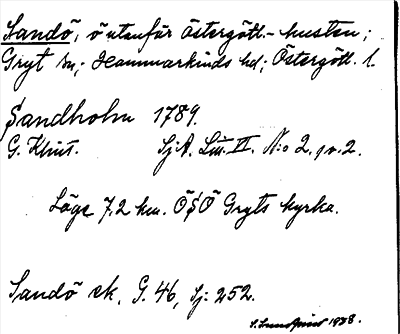 Sandö, ö utanför Östergötl.-kusten;
Gryt sn; Hammarkinds hd; Östergötl. l.
Sandholm 1789.
G. Klint. Sj.A. Lin. VI. N:o 2. 
Läge 7,2 km. ÖSÖ Gryts kyrka.
Sandö ek, G. 46, Sj: 252.
S. Lundqvist 1938.